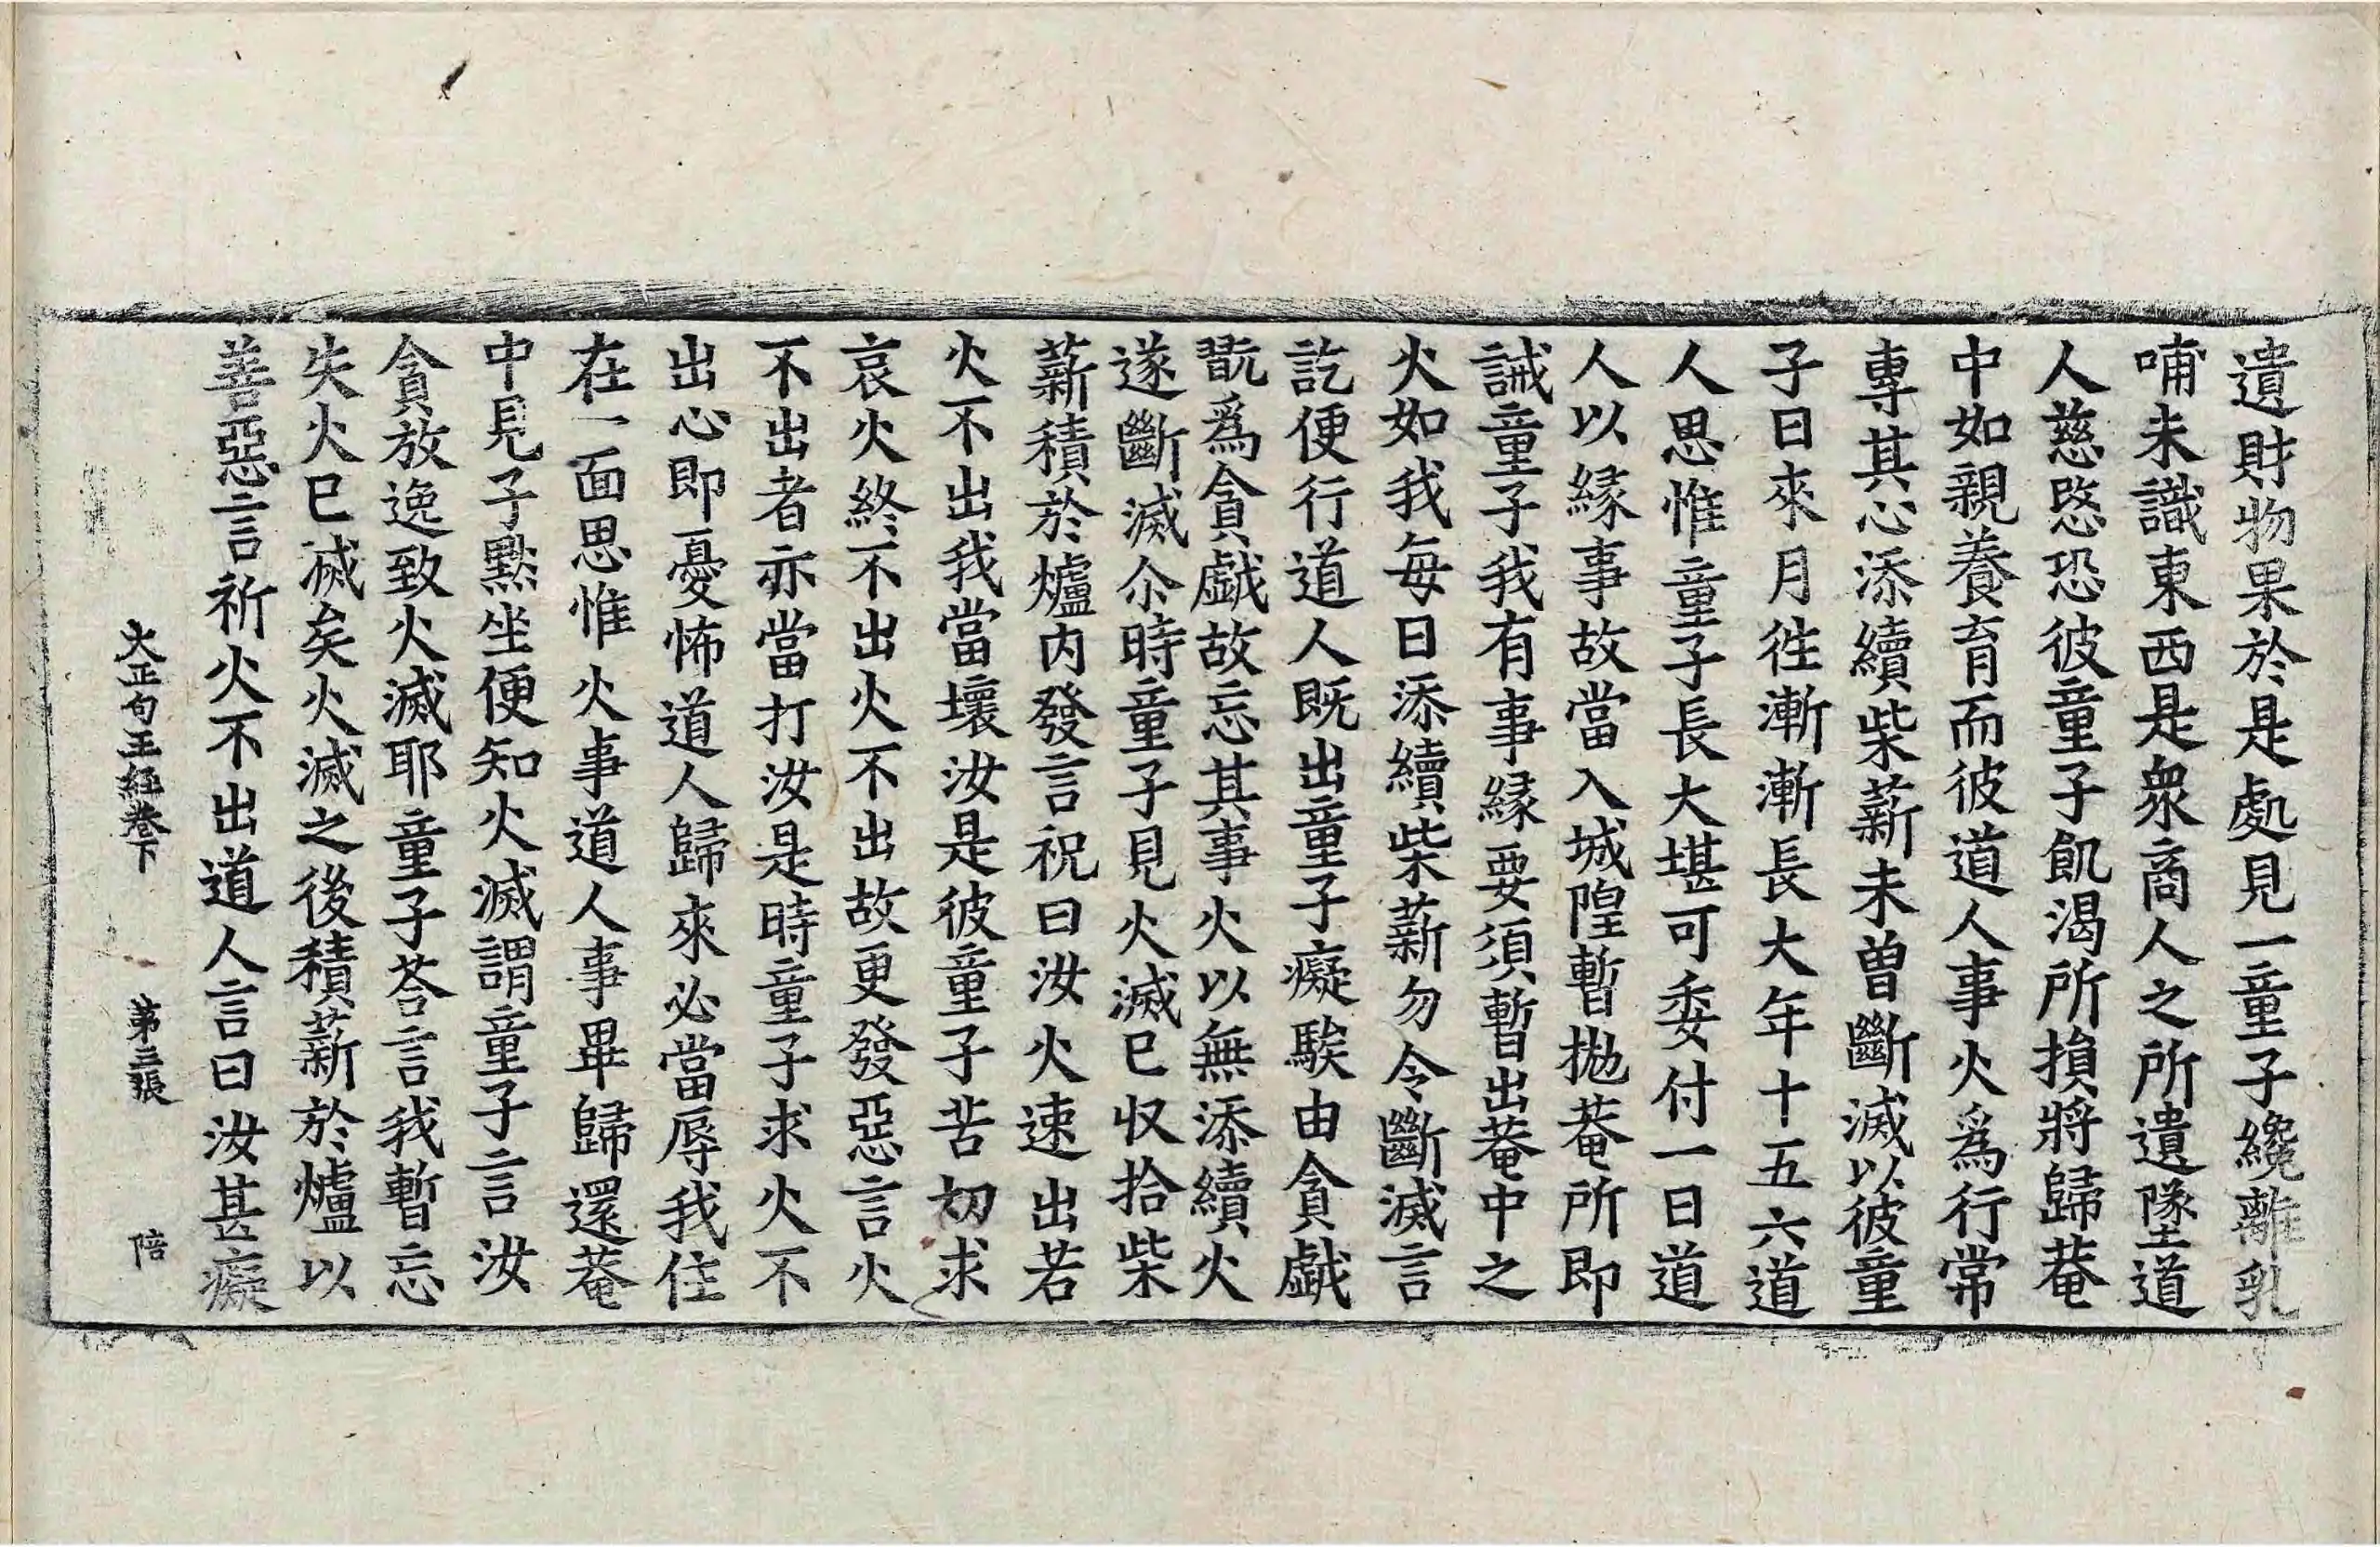 遺財物果於是處見一童子纔離乳
哺未識東西是衆商人之所遺墜道
人慈愍恐彼童子飢渴所損將歸菴
中如親養育而彼道人事火爲行常
專其心添續柴薪未曽斷滅以彼童
子日來月徃漸漸長大年十五六道
人思惟童子長大堪可委付一日道
人以緣事故當入城隍暫拋菴所即
誡童子我有事緣要須暫出菴中之
火如我每日添續柴薪勿令斷滅言
訖便行道人既出童子癡騃由貪戲
翫爲貪戲故忘其事火以無添續火
遂斷滅尒時童子見火滅已收拾柴
薪積於爐内發言祝曰汝火速出若
火不出我當壞汝是彼童子苦切求
哀火終不出火不出故更發惡言火
不出者亦當打汝是時童子求火不
出心即憂怖道人歸來必當辱我住
在一面思惟火事道人事畢歸還菴
中見子黙坐便知火滅謂童子言汝
貪放逸致火滅耶童子荅言我暫忘
失火已滅矣火滅之後積薪於爐以
善惡言祈火不出道人言曰汝甚癡
大正句王經卷下　第三張　陪